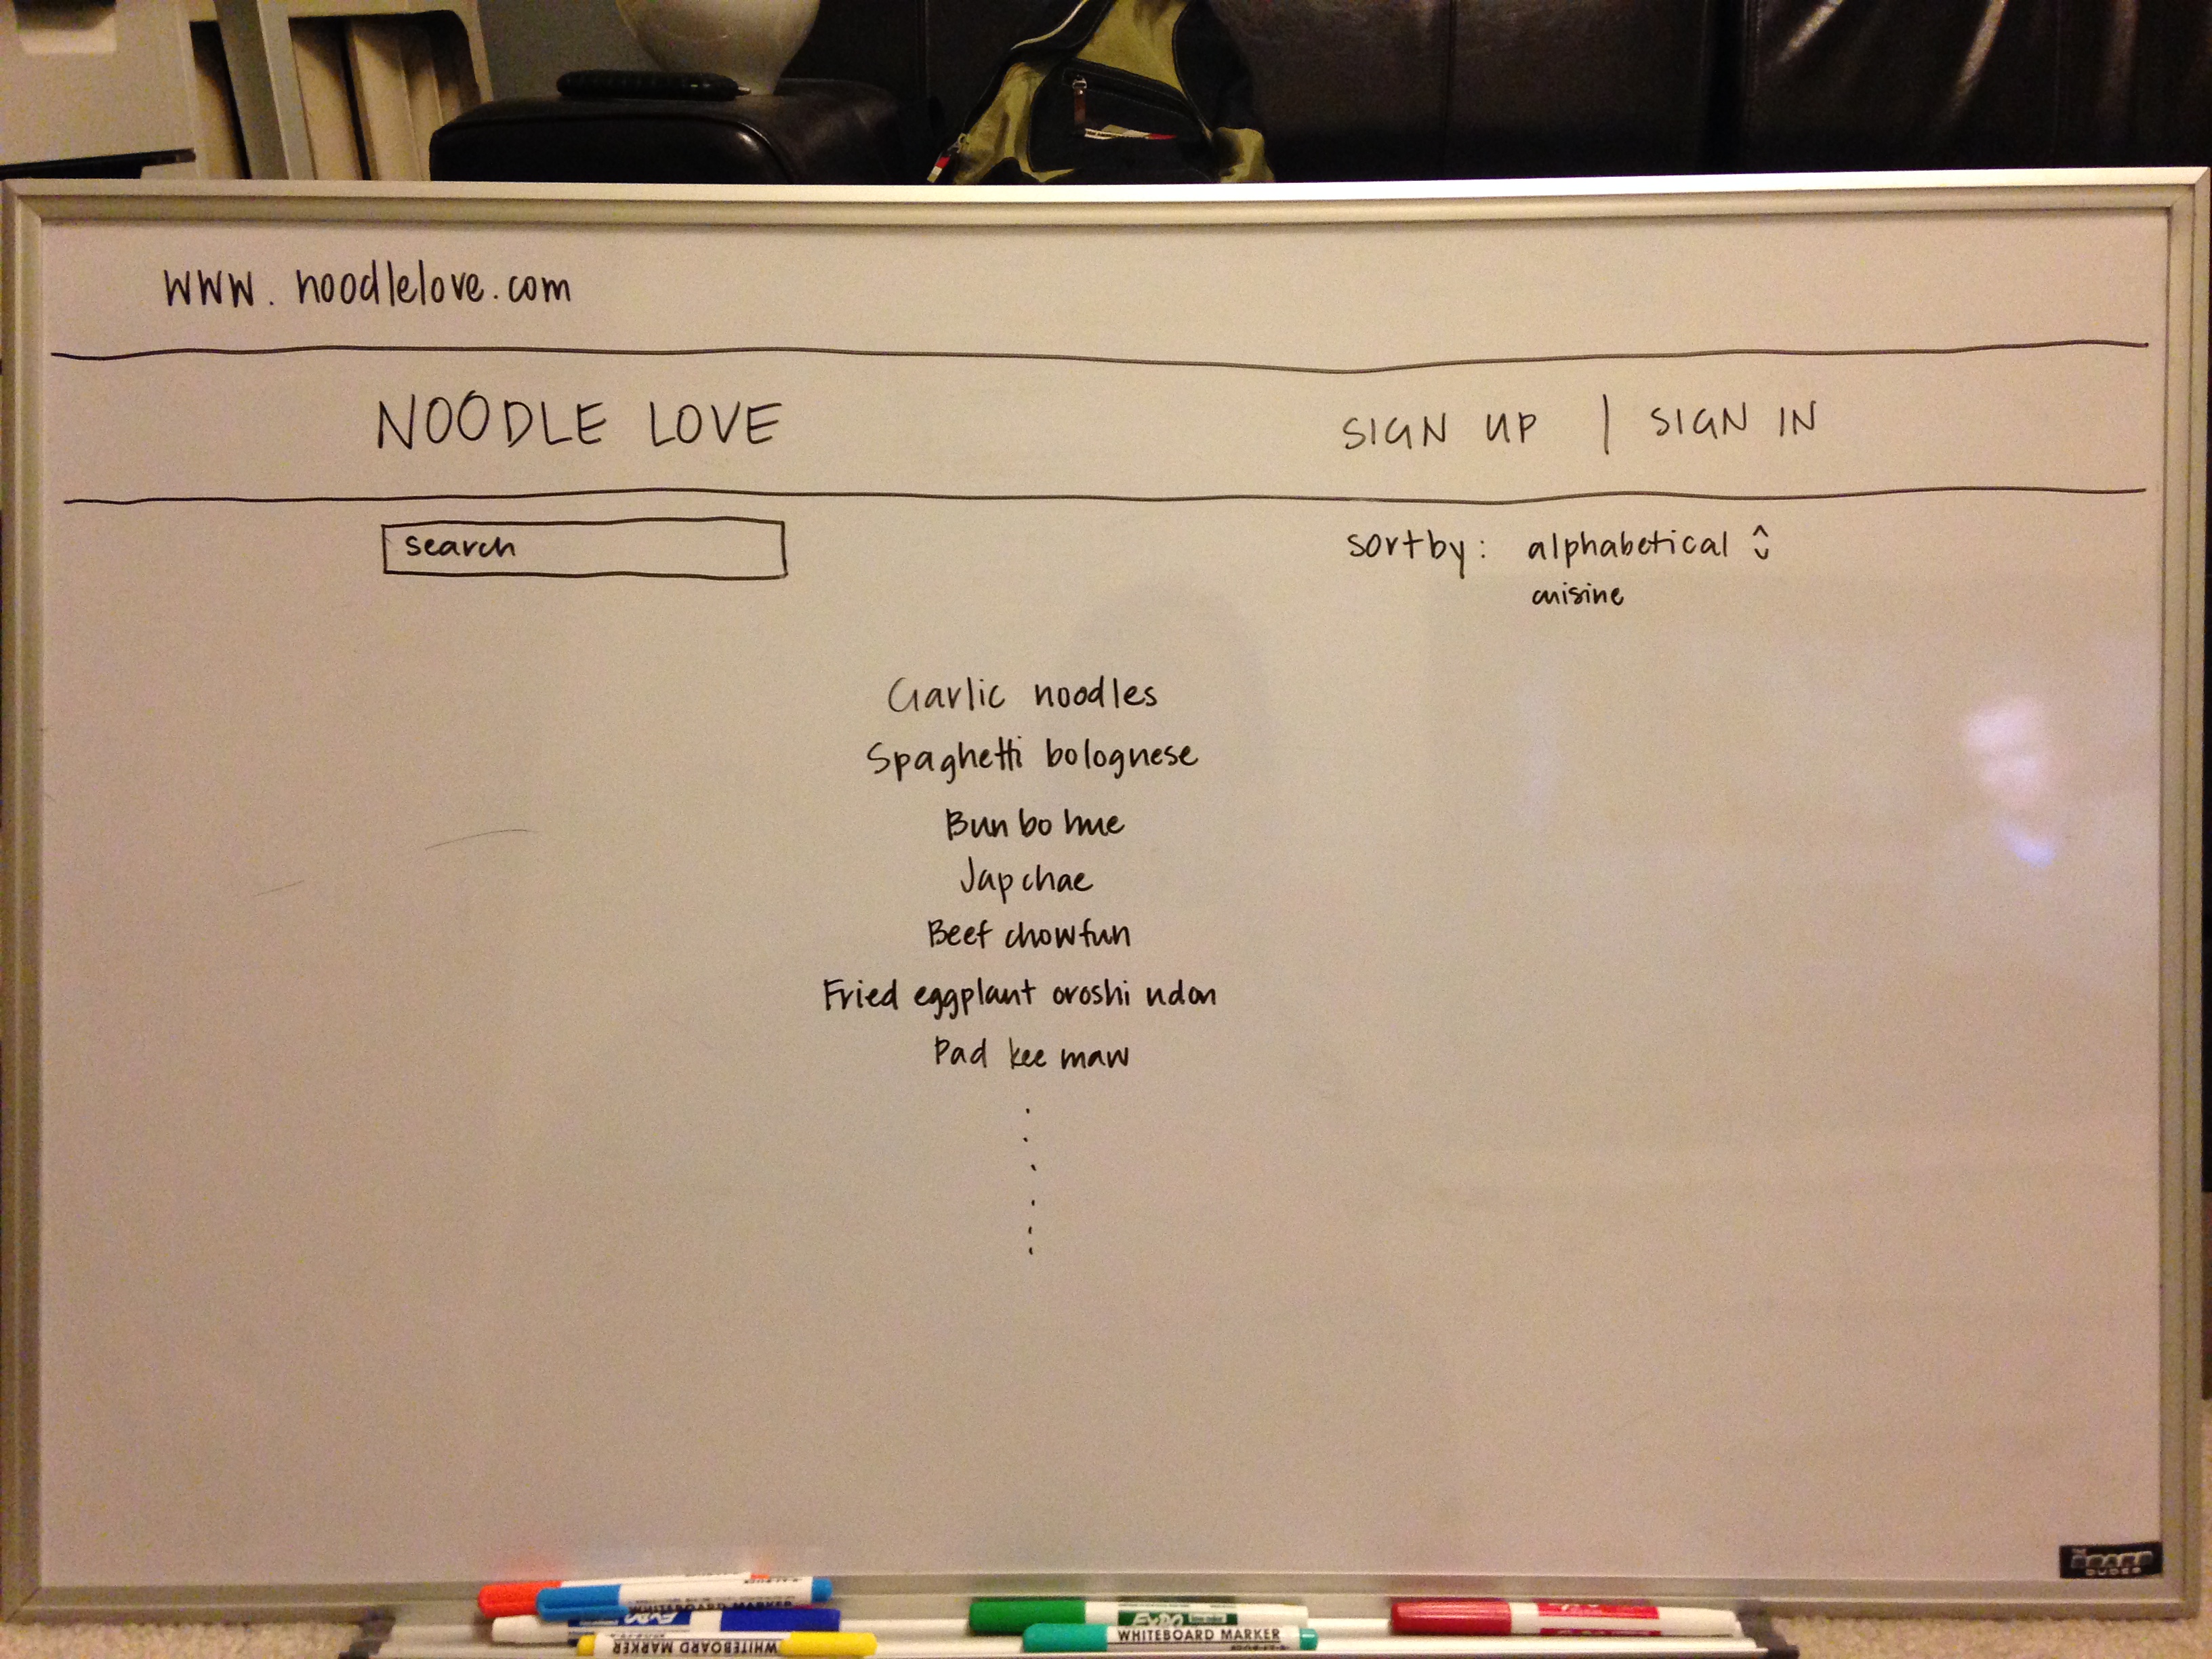 www.noodlelove.com
NOODLE LOVE
SIGN UP | SIGN IN
search
sort by: alphabetical
cuisine
Garlic noodles
Spaghetti bolognese
Bun bo hue
Japchae
Beef chowfun
Fried eggplant oroshi udon
Pad kee maw
THE BOARD
DUDES
WHITEBOARD MARKER
EXPO
EXPO
WHITEBOARD MARKER
WHITEBOARD MARKER